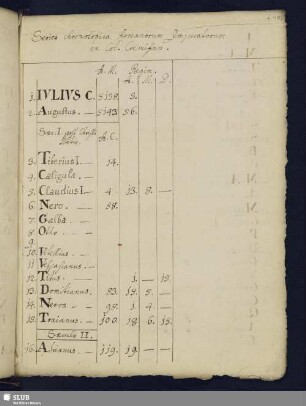 Series chronologica Romanorum Imperatorum
A. M. Regim.
A. M. D.
1. IVLIVS C. 5138. 5.
2. Augustus. — 5143 56.
Sec. I. post Christi
A. C.
3. Tiberius I. — 14.
4. Caligula. —
5. Claudius I. — 4 — 13. 8. —
6. Nero. — 58.
7. Galba. —
8. Otho. —
9.
10. Vitellius. —
11. Vespasianus. —
12. Titus. — 1. — 15.
13. Domitianus. 83. 15. 5. —
14. Nerva — 98. 1. 4 —
15. Traianus. — 100. 18. 6. 15.
Sæculo II.
16. Adrianus — 119. 19. —
SLUB